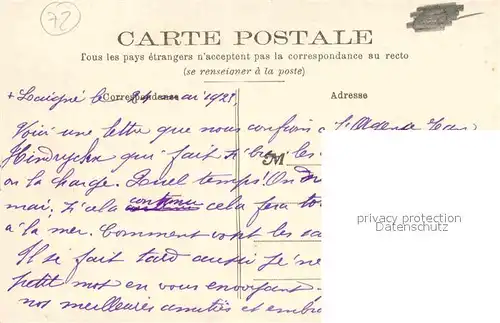 72
CARTE POSTALE
Tous les pays étrangers n'acceptent pas la correspondance au recto
(se renseigner à la poste)
Correspondance
Adresse
le mai 1921
Voici une lettre que nous confions à l'Agente
qui fait si bien les
M
ou la charge. Quel temps! On
mai, si cela continue cela fera
à la mer. Comment vont les
privacy protection
Datenschutz
Il se fait tard aussi je ne
petit mot en vous envoyant
nos meilleures amitiés et